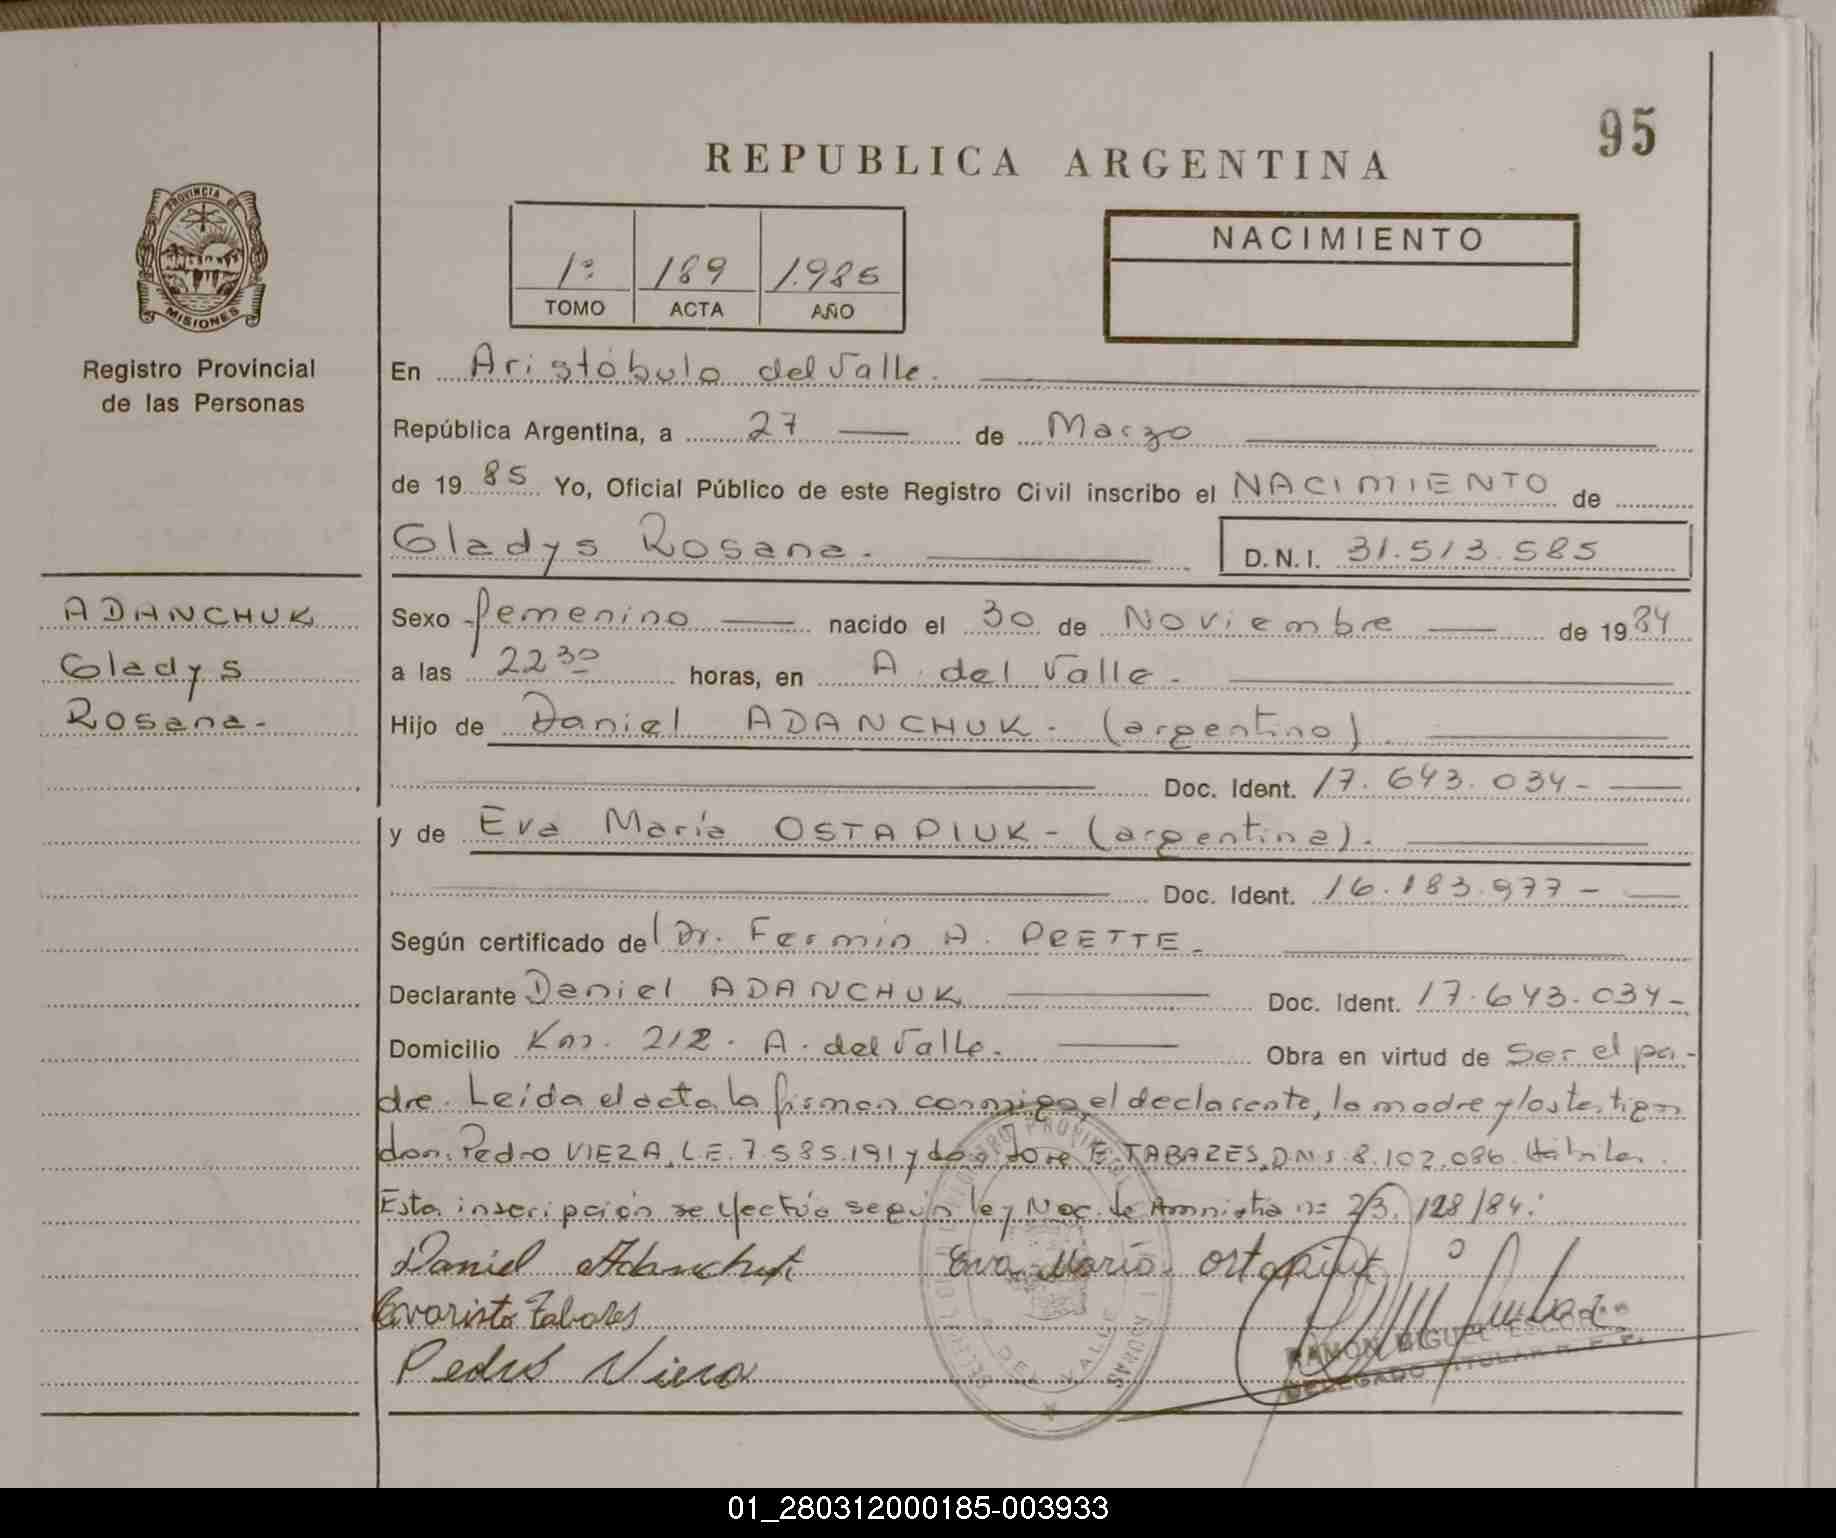 95
REPUBLICA ARGENTINA
PROVINCIA DE
MISIONES
Registro Provincial
de las Personas
1º 189 1.985
TOMO ACTA AÑO
NACIMIENTO
En Aristóbulo del Valle.
República Argentina, a 27 de Marzo
de 19 85 Yo, Oficial Público de este Registro Civil inscribo el NACIMIENTO de
Gladys Rosana. D.N.I. 31.513.585
ADANCHUK
Gladys
Rosana.-
Sexo femenino nacido el 30 de Noviembre de 19 84
a las 22 30 horas, en A. del Valle.
Hijo de Daniel ADANCHUK. (argentino)
Doc. Ident. 17.643.034-
y de Eva María OSTAPIUK - (argentina).
Doc. Ident. 16.183.977-
Según certificado del Dr. Fermín A. PRETTE.
Declarante Daniel ADANCHUK Doc. Ident. 17.643.034-
Domicilio Km. 212. A. del Valle. Obra en virtud de ser el pa-
dre. Leída el acta la firman conmigo, el declarante, la madre y los testigos
don: Pedro VIERA, L.E. 7.585.191 y don José E. TABARES, D.N.I. 8.102.086. Hábiles.
Esta inscripción se efectúa según ley Nac. de Amnistía nº 23.128/84.
Daniel Adanchuk Eva María Ostapiuk
Evaristo Tabares
Pedro Viera
RAMON MIGUEL ESCOBAR
DELEGADO TITULAR R. P. P.
01_280312000185-003933